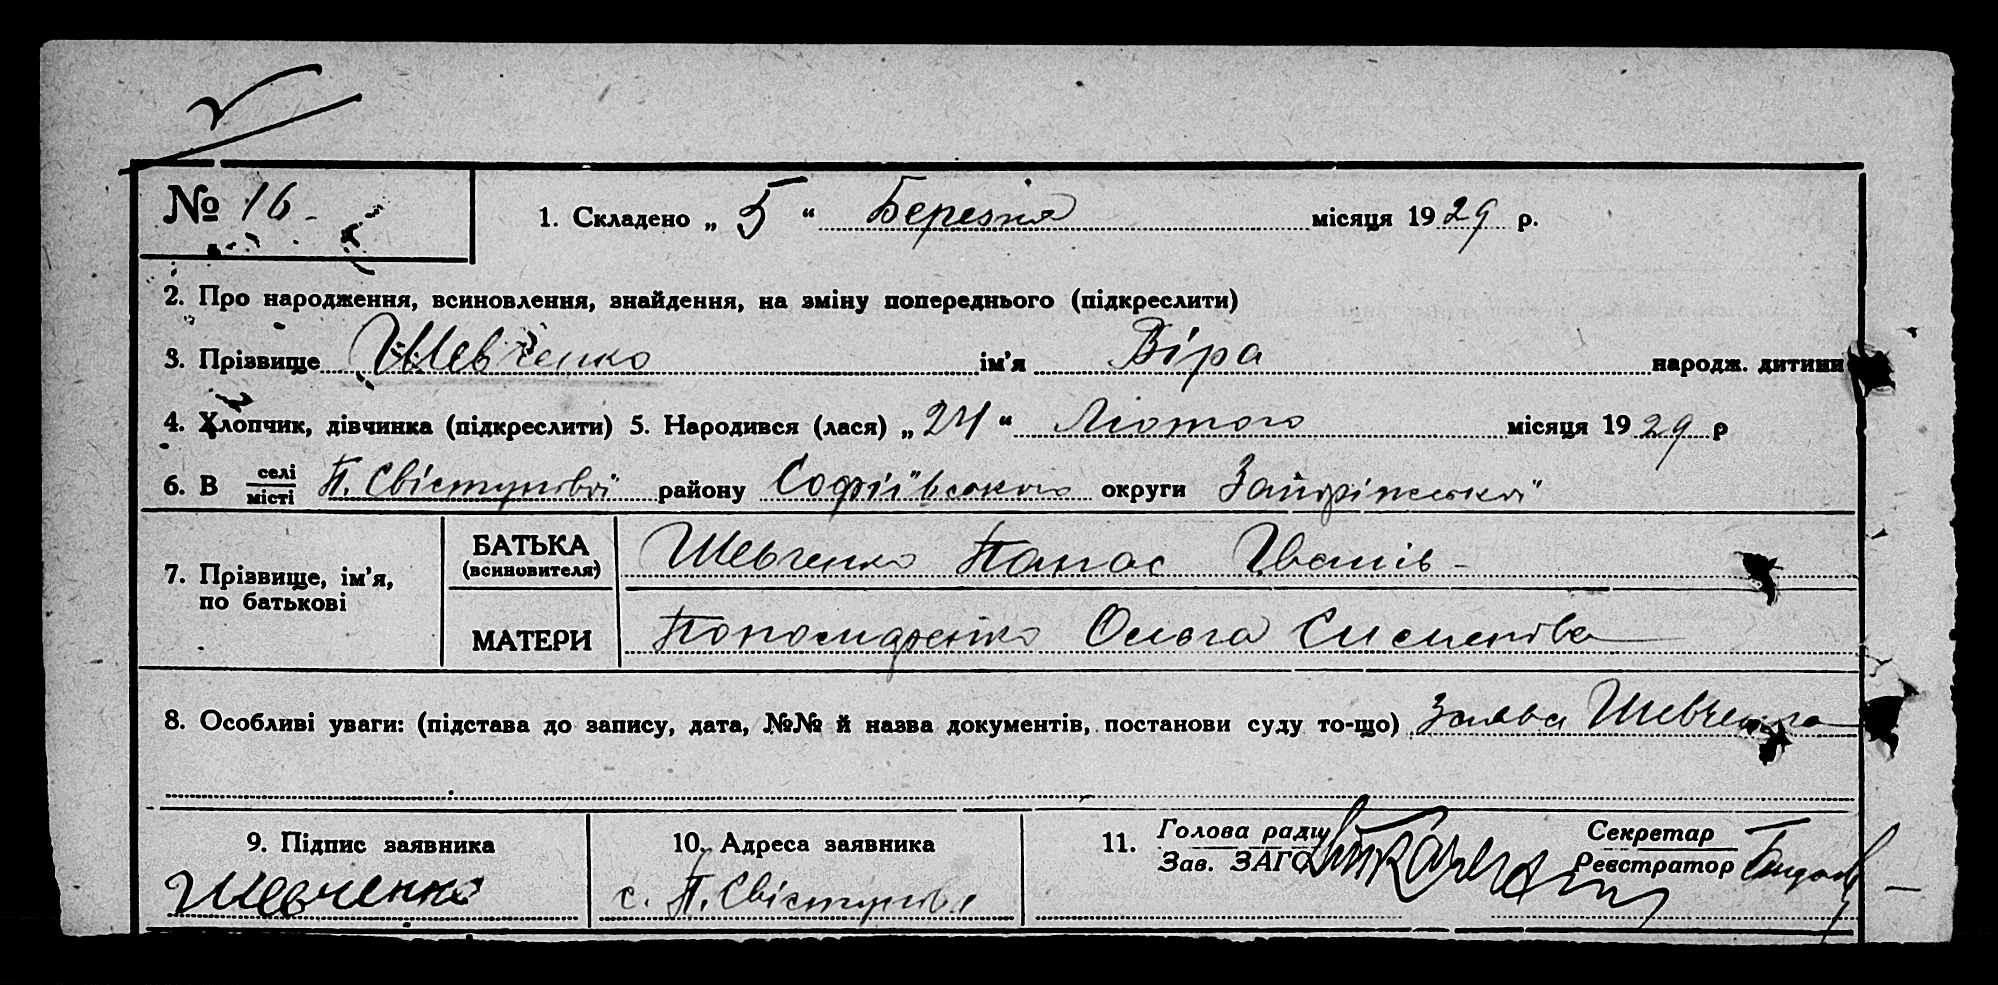 № 16 1. Складено „ 5 “ Березня місяця 1929 р.
2. Про народження, всиновлення, знайдення, на зміну попереднього (підкреслити)
3. Прізвище Шевченко ім’я Віра народж. дитини
4. Хлопчик, дівчинка (підкреслити) 5. Народився (лася) „ 24 “ Лютого місяця 1929 р
6. В селі П. Свістунівої району Софіївського округи Запоріжської
місті
7. Прізвище, ім’я, по батькові
БАТЬКА (всиновителя) Шевченко Панас Іванів
МАТЕРИ Ольга
8. Особливі уваги: (підстава до запису, дата, №№ й назва документів, постанови суду то-що) Заява Шевченка
9. Підпис заявника 10. Адреса заявника 11. Голова ради Секретар
Зав. ЗАГС Реєстратор
Шевченко с. П. Свістунівка